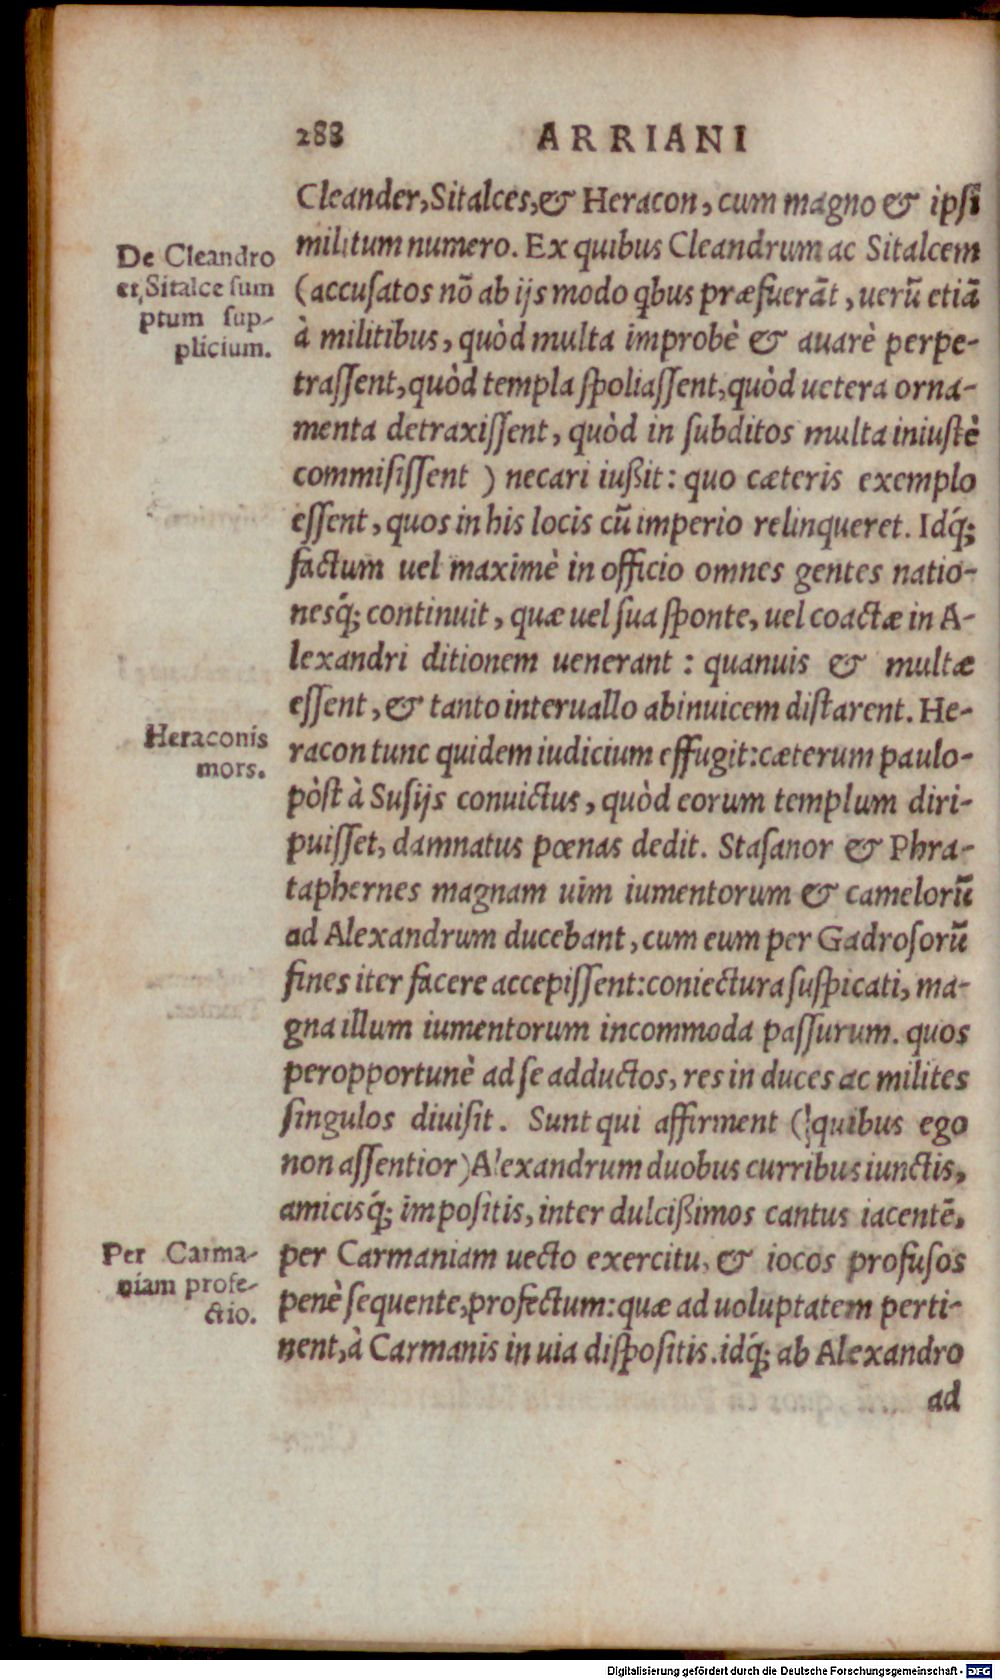 288 ARRIANI
Cleander, Sitalces, & Heracon, cum magno & ipsi
militum numero. Ex quibus Cleandrum ac Sitalcem
(accusatos nõ ab ijs modo qbus præfuerãt, uerũ etiã
à militibus, quòd multa improbè & auarè perpe-
trassent, quòd templa spoliassent, quòd uetera orna-
menta detraxissent, quòd in subditos multa iniustè
commisissent) necari iußit: quo cæteris exemplo
essent, quos in his locis cũ imperio relinqueret. Idq́;
factum uel maximè in officio omnes gentes natio-
nesq́; continuit, quæ uel sua sponte, uel coactæ in A-
lexandri ditionem uenerant: quanuis & multæ
essent, & tanto interuallo abinuicem distarent. He-
racon tunc quidem iudicium effugit: cæterum paulo-
pòst à Susijs conuictus, quòd eorum templum diri-
puisset, damnatus pœnas dedit. Stasanor & Phra-
taphernes magnam uim iumentorum & camelorũ
ad Alexandrum ducebant, cum eum per Gadrosorũ
fines iter facere accepissent: coniectura suspicati, ma-
gna illum iumentorum incommoda passurum. quos
peropportunè ad se adductos, res in duces ac milites
singulos diuisit. Sunt qui affirment (quibus ego
non assentior) Alexandrum duobus curribus iunctis,
amicisq́; impositis, inter dulcißimos cantus iacentẽ,
per Carmaniam uecto exercitu, & iocos profusos
penè sequente, profectum: quæ ad uoluptatem perti-
nent, à Carmanis in uia dispositis. idq́; ab Alexandro
ad
De Cleandro
et Sitalce sum
ptum sup-
plicium.
Heraconis
mors.
Per Carma-
niam profe-
ctio.
Digitalisierung gefördert durch die Deutsche Forschungsgemeinschaft - DFG